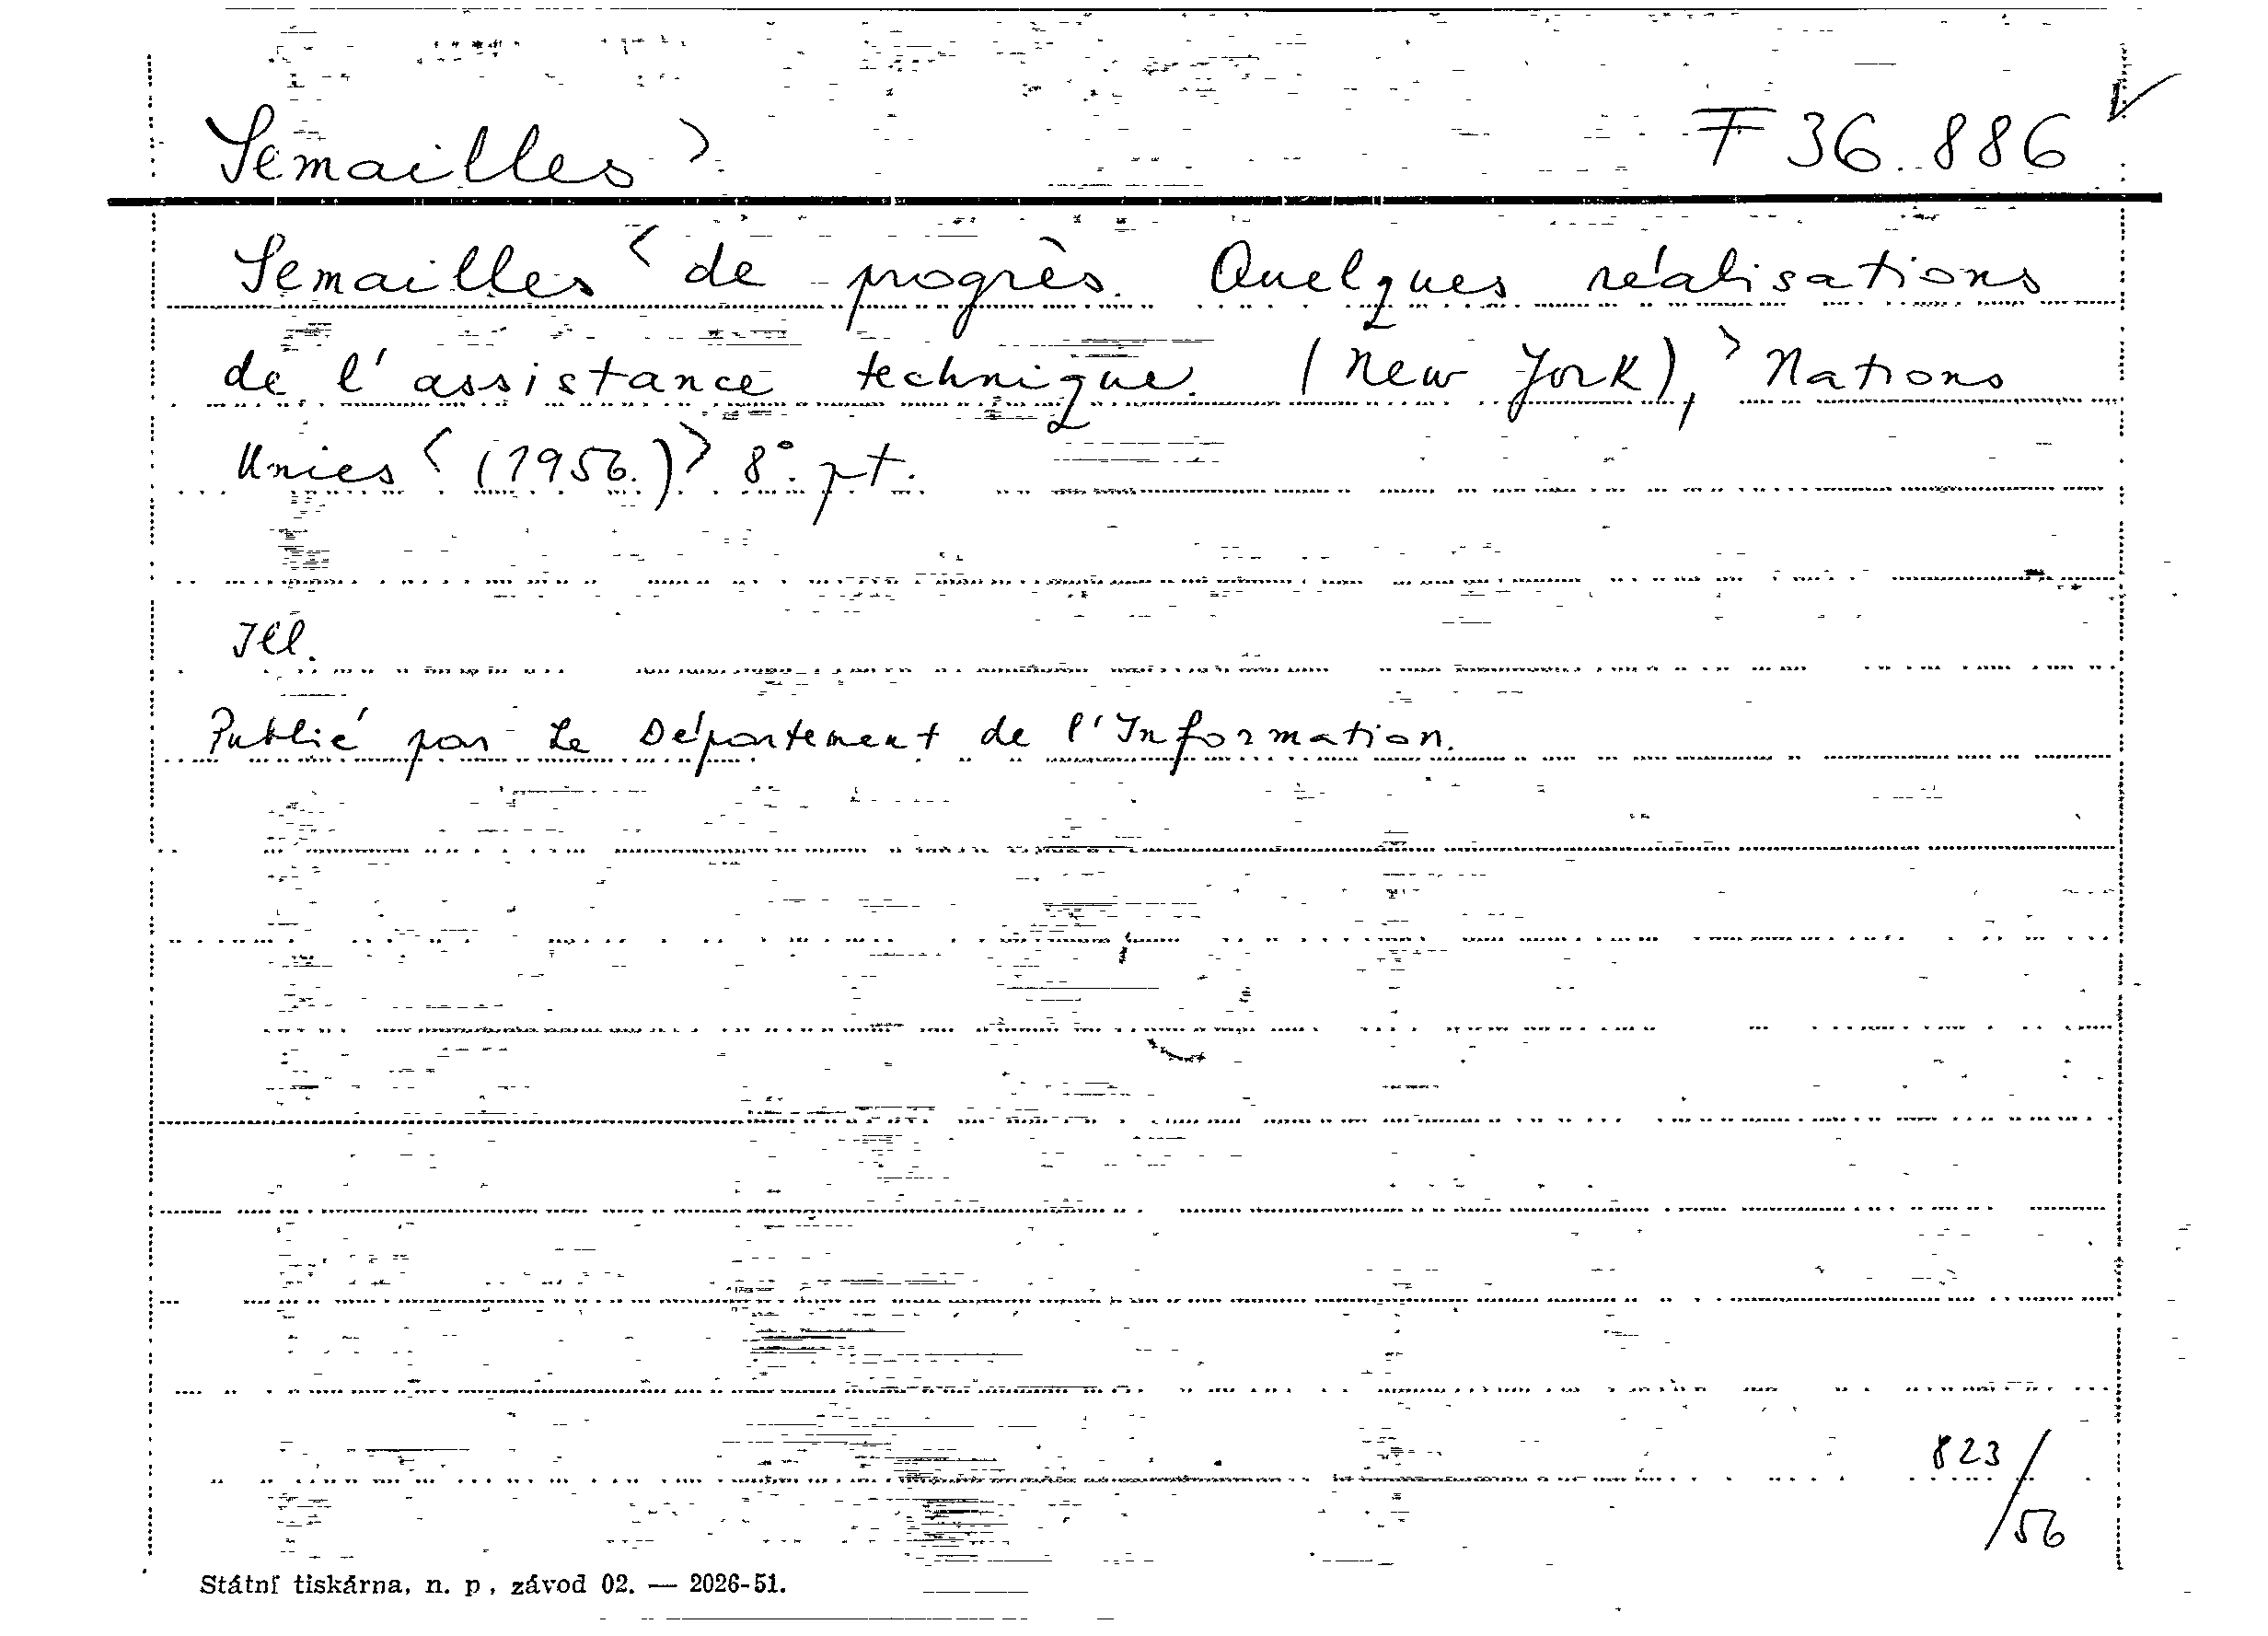 Semailles > F 36.886 √
Semailles < de progrès. Quelques réalisations
de l'assistance technique. (New York), > Nations
Unies < (1956.) > 8°. pt.
Ill.
Publié par Le Département de l'Information.
823/56
Státní tiskárna, n. p., závod 02. — 2026-51.